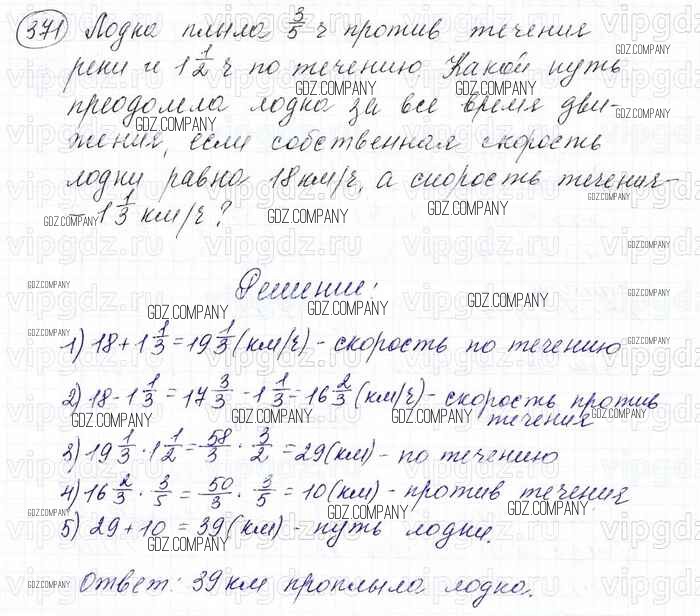 371 Лодка плыла 3/5 ч против течения
реки и 1 1/2 ч по течению. Какой путь
преодолела лодка за все время дви-
жения, если собственная скорость
лодки равна 18 км/ч, а скорость течения-
- 1 1/3 км/ч?
Решение:
1) 18 + 1 1/3 = 19 1/3 (км/ч) - скорость по течению
2) 18 - 1 1/3 = 17 3/3 - 1 1/3 = 16 2/3 (км/ч) - скорость против
течения
3) 19 1/3 · 1 1/2 = 58/3 · 3/2 = 29 (км) - по течению
4) 16 2/3 · 3/5 = 50/3 · 3/5 = 10 (км) - против течения
5) 29 + 10 = 39 (км) - путь лодки.
Ответ: 39 км проплыла лодка.
GDZ.COMPANY
vipgdz.ru